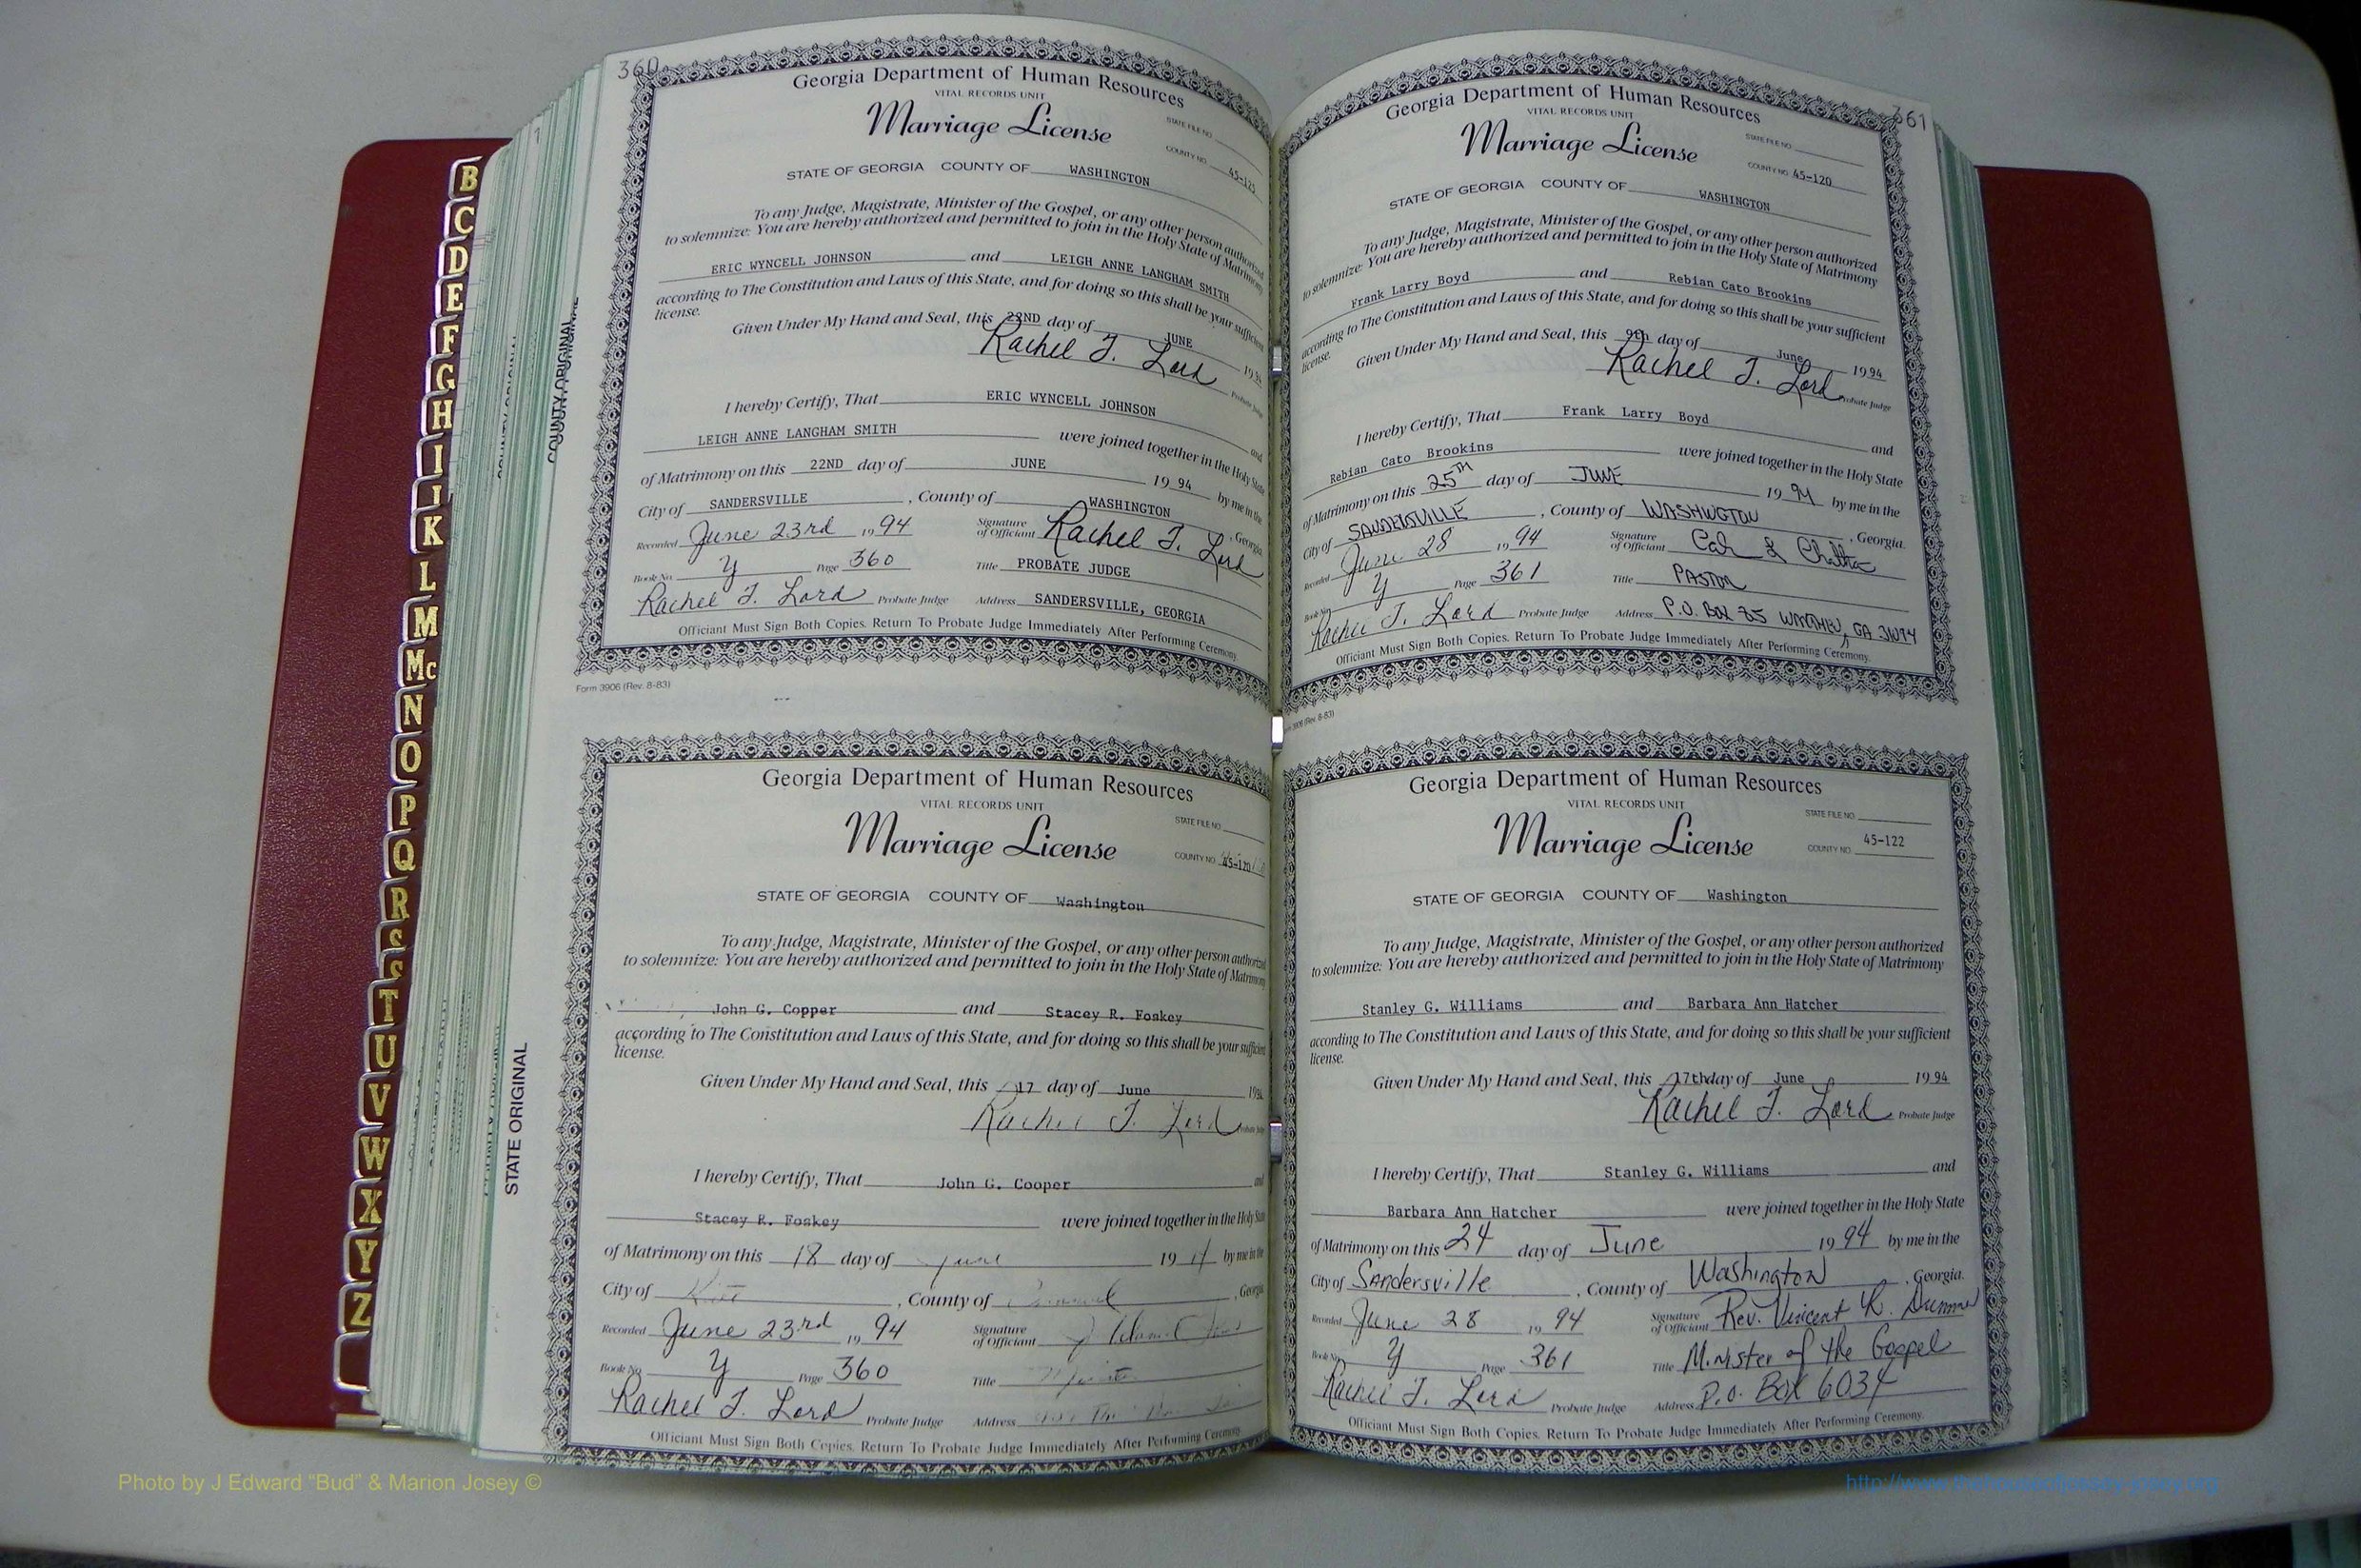 B
C
D
E
F
G
H
I
J
K
L
M
Mc
N
O
P
Q
R
S
T
U
V
W
X
Y
Z
COUNTY ORIGINAL
STATE ORIGINAL
360
Georgia Department of Human Resources
VITAL RECORDS UNIT
Marriage License
STATE FILE NO.
COUNTY NO.
STATE OF GEORGIA COUNTY OF WASHINGTON
To any Judge, Magistrate, Minister of the Gospel, or any other person authorized
to solemnize: You are hereby authorized and permitted to join in the Holy State of Matrimony
ERIC WYNCELL JOHNSON and LEIGH ANNE LANGHAM SMITH
according to The Constitution and Laws of this State, and for doing so this shall be your sufficient
license.
Given Under My Hand and Seal, this 22ND day of JUNE 1994
Rachel T. Lord Probate Judge
I hereby Certify, That ERIC WYNCELL JOHNSON and
LEIGH ANNE LANGHAM SMITH were joined together in the Holy State
of Matrimony on this 22ND day of JUNE 19 94 by me in the
City of SANDERSVILLE, County of WASHINGTON, Georgia.
Recorded June 23rd, 19 94 Signature of Officiant Rachel T. Lord
Book No. Y Page 360 Title PROBATE JUDGE
Rachel T. Lord Probate Judge Address SANDERSVILLE, GEORGIA
Officiant Must Sign Both Copies. Return To Probate Judge Immediately After Performing Ceremony.
Form 3906 (Rev. 8-83)
Georgia Department of Human Resources
VITAL RECORDS UNIT
Marriage License
STATE FILE NO.
COUNTY NO. 45-120
STATE OF GEORGIA COUNTY OF Washington
To any Judge, Magistrate, Minister of the Gospel, or any other person authorized
to solemnize: You are hereby authorized and permitted to join in the Holy State of Matrimony
John G. Copper and Stacey R. Foskey
according to The Constitution and Laws of this State, and for doing so this shall be your sufficient
license.
Given Under My Hand and Seal, this 17 day of June 1994
Rachel T. Lord Probate Judge
I hereby Certify, That John G. Cooper and
Stacey R. Foskey were joined together in the Holy State
of Matrimony on this 18 day of June 19 by me in the
City of , County of , Georgia
Recorded June 23rd 19 94 Signature of Officiant
Book No. Y Page 360 Title
Rachel T. Lord Probate Judge Address
Officiant Must Sign Both Copies. Return To Probate Judge Immediately After Performing Ceremony.
361
Georgia Department of Human Resources
VITAL RECORDS UNIT
Marriage License
STATE FILE NO.
COUNTY NO. 45-120
STATE OF GEORGIA COUNTY OF WASHINGTON
To any Judge, Magistrate, Minister of the Gospel, or any other person authorized
to solemnize: You are hereby authorized and permitted to join in the Holy State of Matrimony
Frank Larry Boyd and Rebian Cato Brookins
according to The Constitution and Laws of this State, and for doing so this shall be your sufficient
license.
Given Under My Hand and Seal, this 9th day of June 1994
Rachel T. Lord Probate Judge
I hereby Certify, That Frank Larry Boyd and
Rebian Cato Brookins were joined together in the Holy State
of Matrimony on this 25TH day of JUNE 19 94 by me in the
City of SANDERSVILLE, County of WASHINGTON, Georgia.
Recorded June 28 19 94 Signature of Officiant
Book No. Y Page 361 Title PASTOR
Rachel T. Lord Probate Judge Address P.O. BOX GA
Officiant Must Sign Both Copies. Return To Probate Judge Immediately After Performing Ceremony.
Form 3906 (Rev. 8-83)
Georgia Department of Human Resources
VITAL RECORDS UNIT
Marriage License
STATE FILE NO.
COUNTY NO. 45-122
STATE OF GEORGIA COUNTY OF Washington
To any Judge, Magistrate, Minister of the Gospel, or any other person authorized
to solemnize: You are hereby authorized and permitted to join in the Holy State of Matrimony
Stanley G. Williams and Barbara Ann Hatcher
according to The Constitution and Laws of this State, and for doing so this shall be your sufficient
license.
Given Under My Hand and Seal, this 17th day of June 1994
Rachel T. Lord Probate Judge
I hereby Certify, That Stanley G. Williams and
Barbara Ann Hatcher were joined together in the Holy State
of Matrimony on this 24 day of June 19 94 by me in the
City of Sandersville, County of Washington, Georgia.
Recorded June 28 19 94 Signature of Officiant Rev. Vincent
Book No. Y Page 361 Title Minister of the Gospel
Rachel T. Lord Probate Judge Address P.O. Box 6034
Officiant Must Sign Both Copies. Return To Probate Judge Immediately After Performing Ceremony.
Photo by J Edward “Bud” & Marion Josey ©